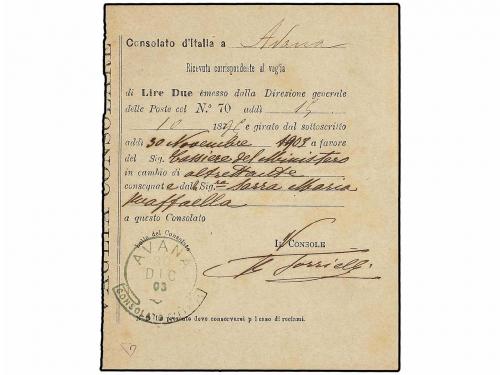 Consolato d'Italia a Avana
Ricevuta corrispondente al vaglia
di Lire Due emesso dalla Direzione generale
delle Poste col N.° 70 addì
10 189 e girato dal sottoscritto
addì 30 Novembre 1903 a favore
del Sig. Cassiere del Ministero
in cambio di altrettante
consegnate dalla Sig.ra Sarra Maria
Raffaella
a questo Consolato
Bollo del Consolato
IL CONSOLE
AVANA
DIC
03
CONSOLATO
presente deve conservarsi pel caso di reclami.
VAGLIA CONSOLARE